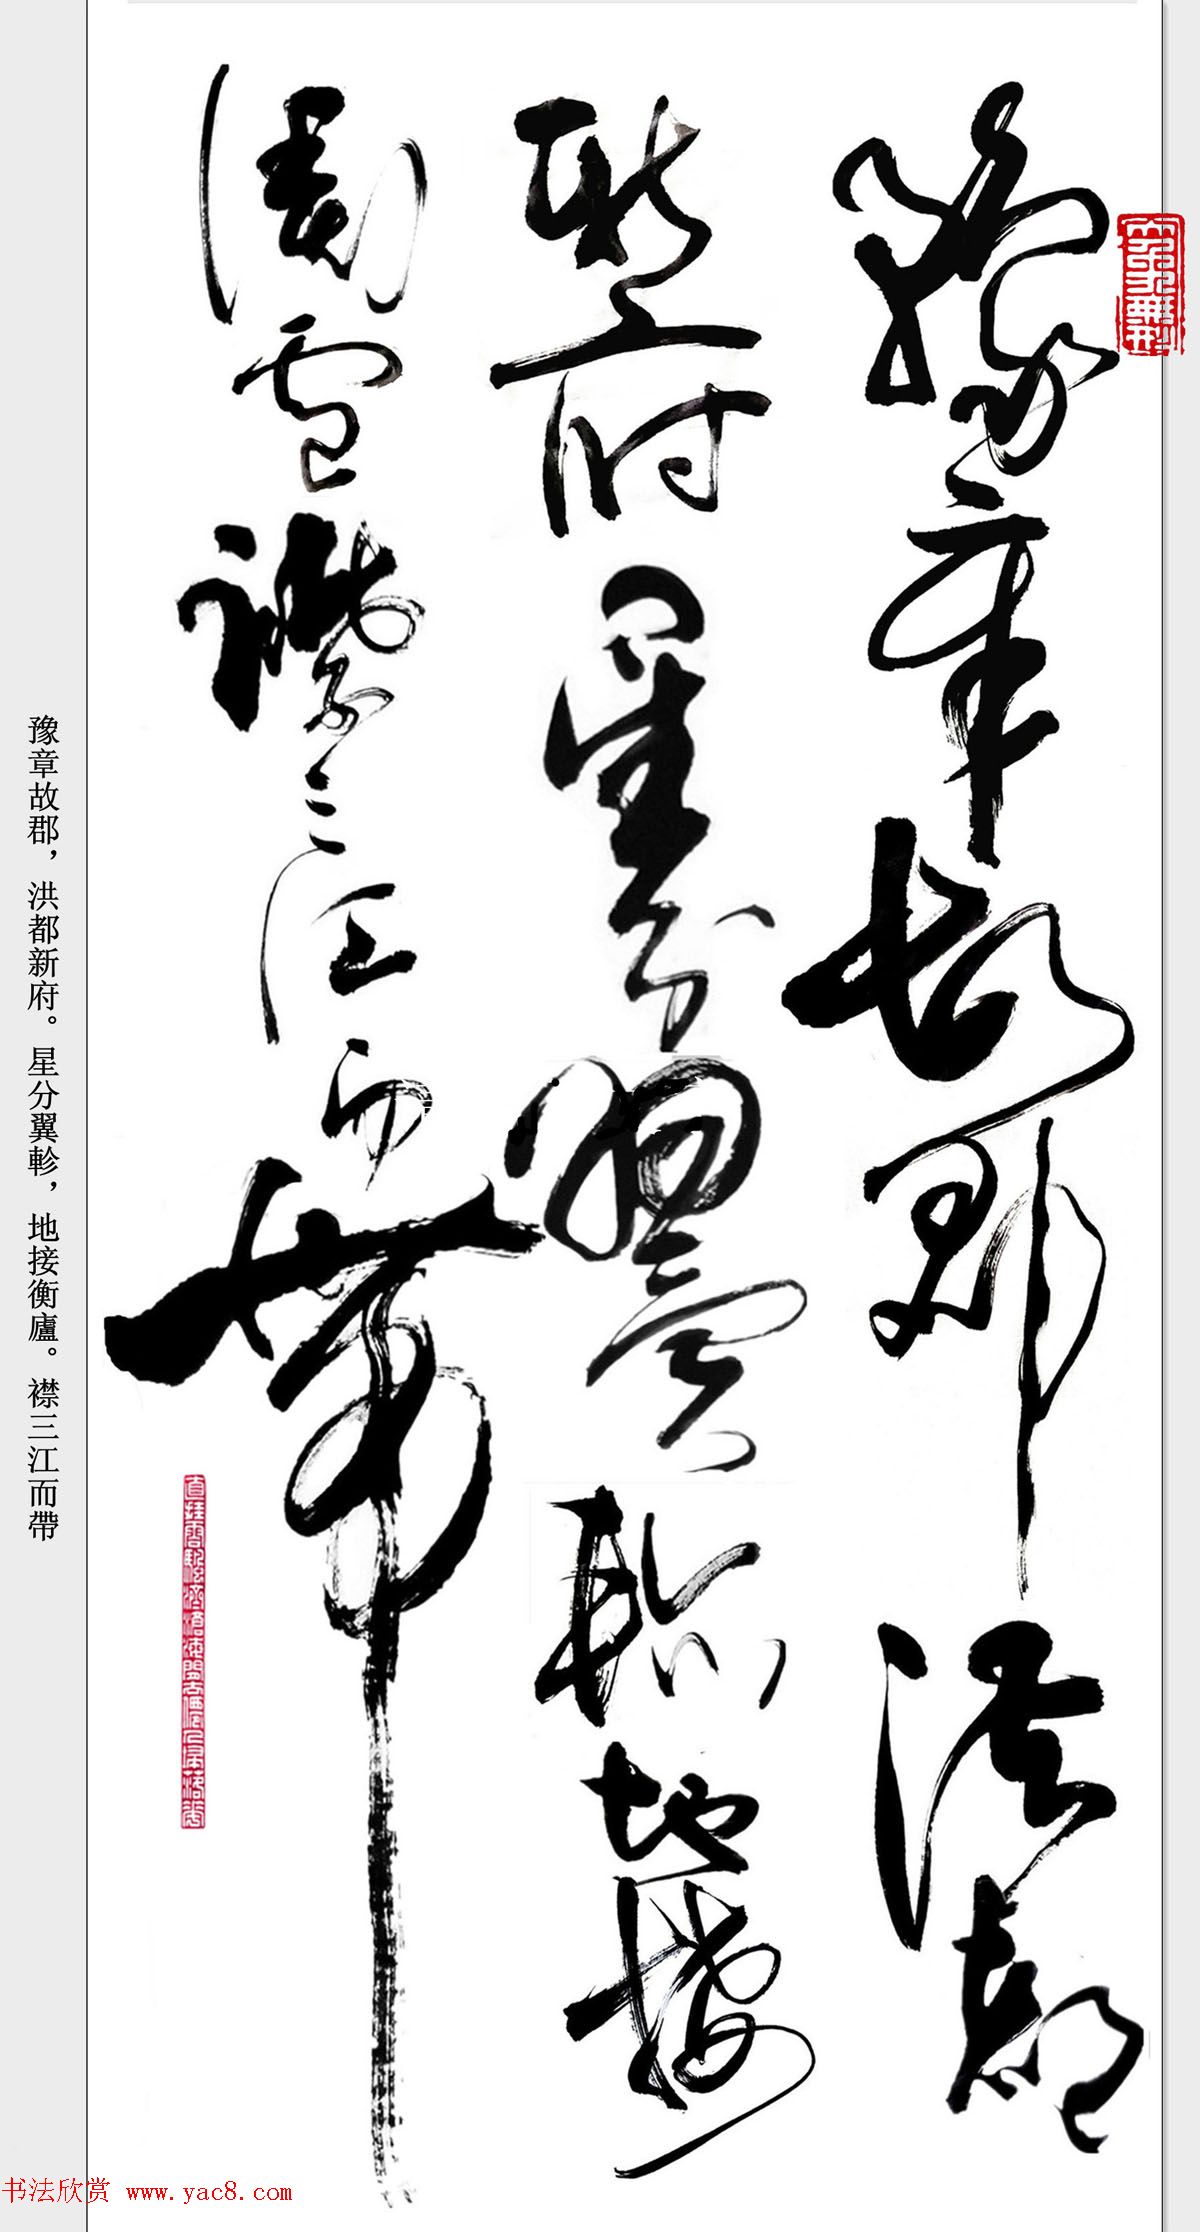 豫章故郡洪都
新府星分翼軫地接
衡廬襟三江而帶
豫章故郡，洪都新府。星分翼軫，地接衡廬。襟三江而帶
书法欣赏 www.yac8.com